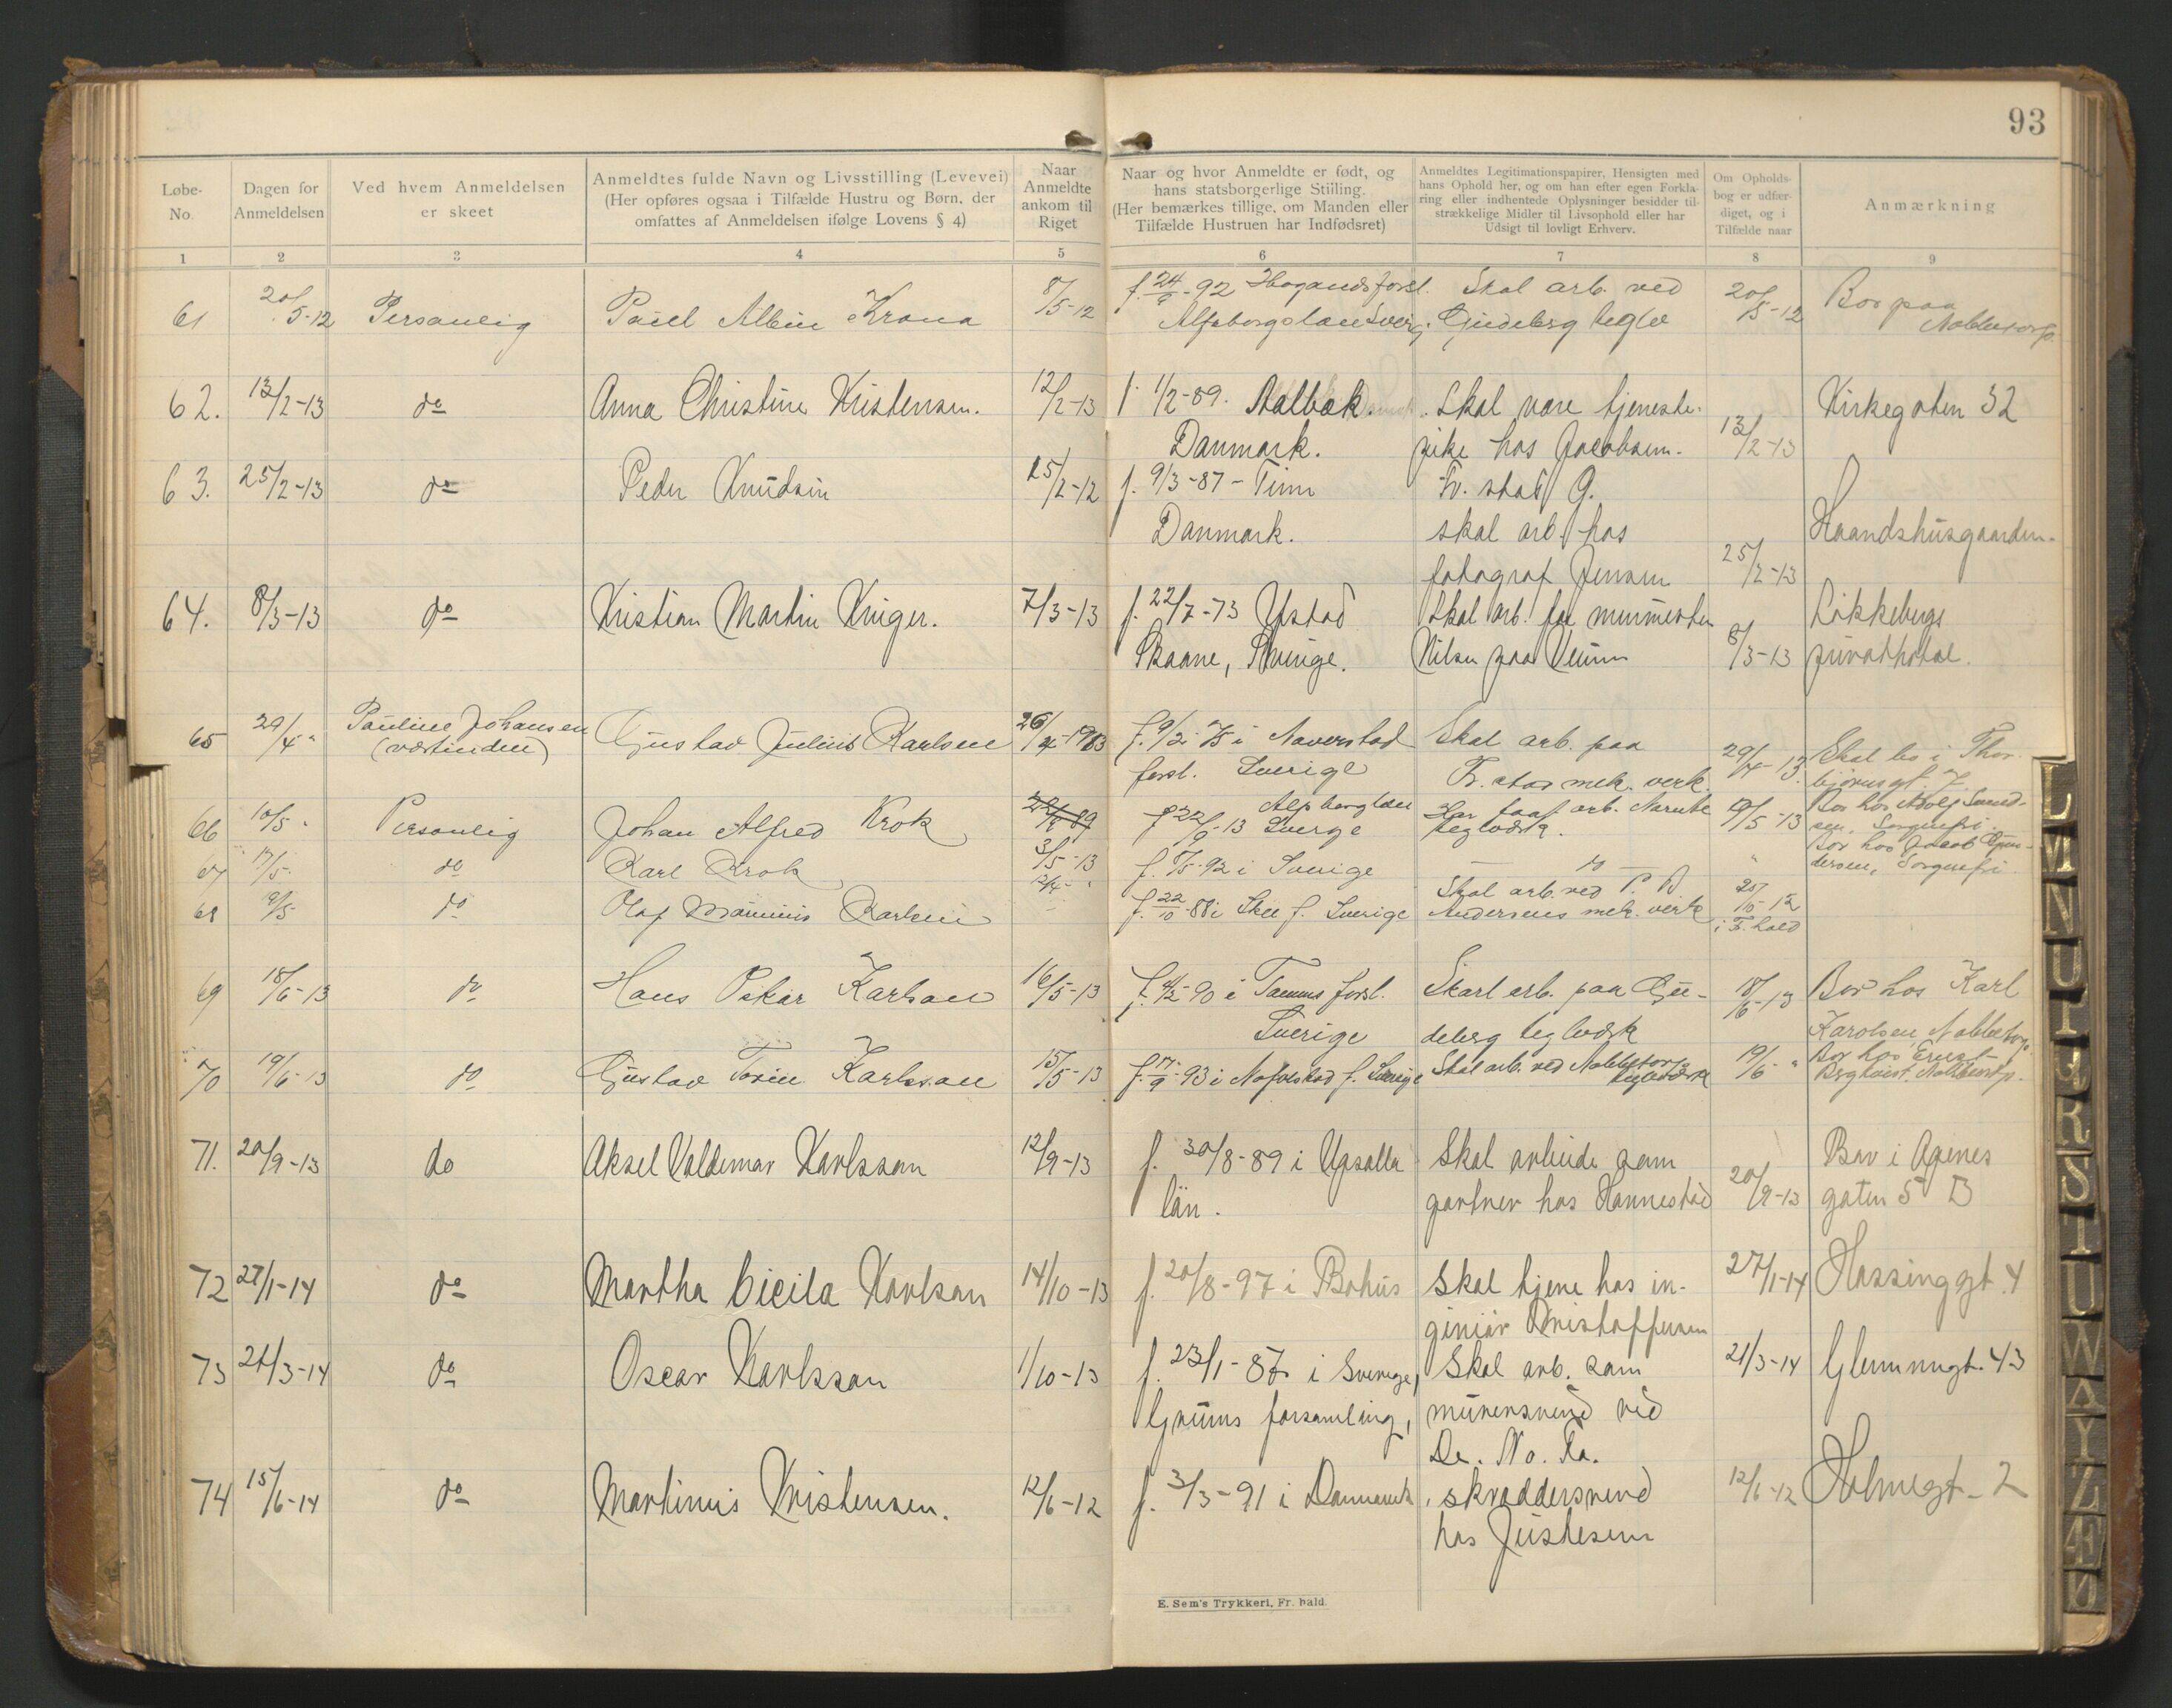 93
Løbe-
No.
Dagen for
Anmeldelsen
Ved hvem Anmeldelsen
er skeet
Anmeldtes fulde Navn og Livsstilling (Levevei)
(Her opføres ogsaa i Tilfælde Hustru og Børn, der
omfattes af Anmeldelsen ifølge Lovens § 4)
Naar
Anmeldte
ankom til
Riget
Naar og hvor Anmeldte er født, og
hans statsborgerlige Stilling.
(Her bemærkes tillige, om Manden eller
Tilfælde Hustruen har Indfødsret)
Anmeldtes Legitimationspapirer, Hensigten med
hans Ophold her, og om han efter egen Forkla-
ring eller indhentede Oplysninger besidder til-
strækkelige Midler til Livsophold eller har
Udsigt til lovligt Erhverv.
Om Opholds-
bog er udfær-
diget, og i
Tilfælde naar
Anmærkning
1 2 3 4 5 6 7 8 9
61 20/5-12 Personlig Paul Albin Krona 8/5-12 f. 24/9-92 Skal arb. ved 20/5-12 Bor paa
Gudeberg teglv Nabbetorp
62. 13/2-13 do Anna Christine Kristensen. 12/2-13 f. 1/2-89. Aalbæk. Skal være tjeneste- Kirkegaten 32
Danmark. pike hos Jacobsen. 13/2-13
63. 25/2-13 do Peder Knudsen 25/2-12 f. 9/3-87 - Tinn Fr. stad G.
Danmark. skal arb. hos Haandshusgaarden.
fotograf Jensen 25/2-13
64. 8/3-13 do Kristian Martin Kruger. 7/3-13 f. 22/7-73 Ystad Skal arb. for murmester Løkkebergs
Skaane, Sverige. Nilsen paa Veum 8/3-13 privathotel.
65 29/4 " Pauline Johansen
(værtinden) Gustav Julius Karlsen f. 9/2-75 i Naverstad Skal arb. paa 29/4-13 Skal bo i Thor-
forsl. Sverige Fr. stad mek. verk.
66 10/5 " Personlig Johan Alfred Krok f. 22/9-13 Sverge Har faat arb. teglværk. 19/5-13 Bor hos Adolf
Sorgenfri
67 17/5 do Karl Krok 3/5-13 i Sverige do " Bor hos Jacob
dersen, Sorgenfri
68 19/5 do Olaf Karlsen f. 22/10-88 i Skee f. Sverige Skal arb. ved P. A.
Andersens mek. verk
69 18/6-13 do Hans Oskar Karlsen 16/5-13 i Tanums forsl. Skal arb. paa Gu- 18/6-13 Bor hos Karl
Sverige deberg teglværk Karolsen, Nabbetorp
70 19/6-13 do Gustav Karlsson 15/5-13 f. 17/9-93 i f. Sverige Skal arb. ved Nabbetorp
teglværk 19/6 " Bor hos Ernst
Nabbetorp.
71. 20/9-13 do Aksel Valdemar Karlsson 12/9-13 f. 30/8-89 i Upsalla Skal arbeide som Bor i Agenes
län. gartner hos Hannestad 20/9-13 gaten 5 B
72 27/1-14 do Martha Cicila Karlson 14/10-13 f. 20/8-97 i Bohus Skal tjene hos in- 27/1-14 Hassinggt. 4
geniør Kristoffersen
73 21/3-14 do Oscar Karlsson 1/10-13 f. 23/1-87 i Sverige, Skal arb. som 21/3-14 Glemmengt. 43
Grums forsamling, murersvend ved
De. No. Fa.
74 15/6-14 do Martinus Kristensen. 12/6-12 f. 3/3-91 i Danmark, skræddersvend 12/6-12 Holmegt. 2
hos Justesen
E. Sem's Trykkeri, Fr. hald.
L
M
N
O
P
R
S
T
U
W
Y
Z
Æ
Ø